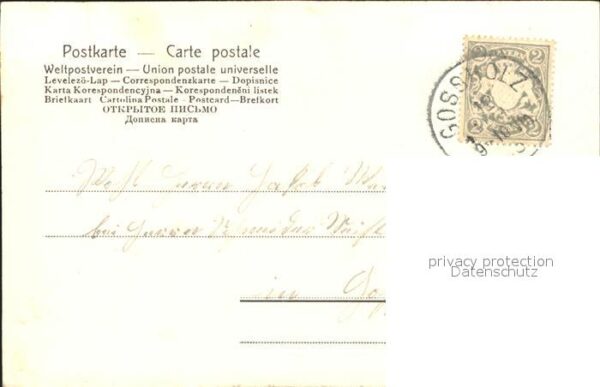 Postkarte — Carte postale
Weltpostverein — Union postale universelle
Levelező-Lap — Correspondenzkarte — Dopisnice
Karta Korespondencyjna — Korespondenčni listek
Briefkaart Cartolina Postale - Postcard — Brefkort
ОТКРЫТОЕ ПИСЬМО
Дописна карта
2 2
2 2
GOSSHOLZ
Herrn Jakob
bei Herrn
in
privacy protection
Datenschutz